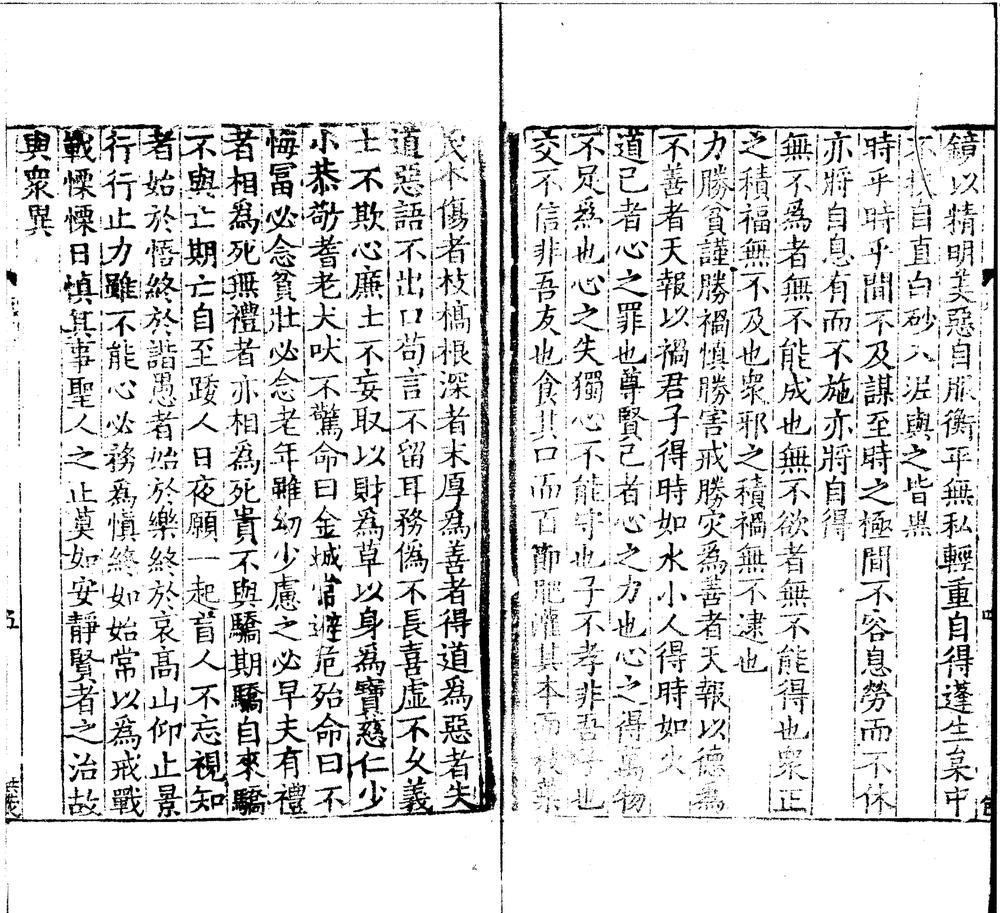 鏡以精明美惡自服衡平無私輕重自得蓬生枲中
不扶自直白砂入泥與之皆黑
時乎時乎間不及謀至時之極間不容息勞而不休
亦將自息有而不施亦將自得
無不爲者無不能成也無不欲者無不能得也衆正
之積福無不及也衆邪之積禍無不逮也
力勝貧謹勝禍慎勝害戒勝灾爲善者天報以德爲
不善者天報以禍君子得時如水小人得時如火
道已者心之罪也尊賢已者心之力也心之得萬物
不足爲也心之失獨心不能守也子不孝非吾子也
交不信非吾友也食其口而百節肥灌其本而枝葉
茂本傷者枝槁根深者末厚爲善者得道爲惡者失
道惡語不出口苟言不留耳務僞不長喜虛不久義
士不欺心廉士不妄取以財爲草以身爲寶慈仁少
小恭敬耆老犬吠不驚命曰金城常避危殆命曰不
悔冨必念貧壯必念老年雖幼少慮之必早夫有禮
者相爲死無禮者亦相爲死貴不與驕期驕自來驕
不與亡期亡自至踆人日夜願一起盲人不忘視知
者始於悟終於諧愚者始於樂終於哀高山仰止景
行行止力雖不能心必務爲慎終如始常以爲戒戰
戰慄慄日慎其事聖人之止莫如安靜賢者之治故
與衆異
四
五